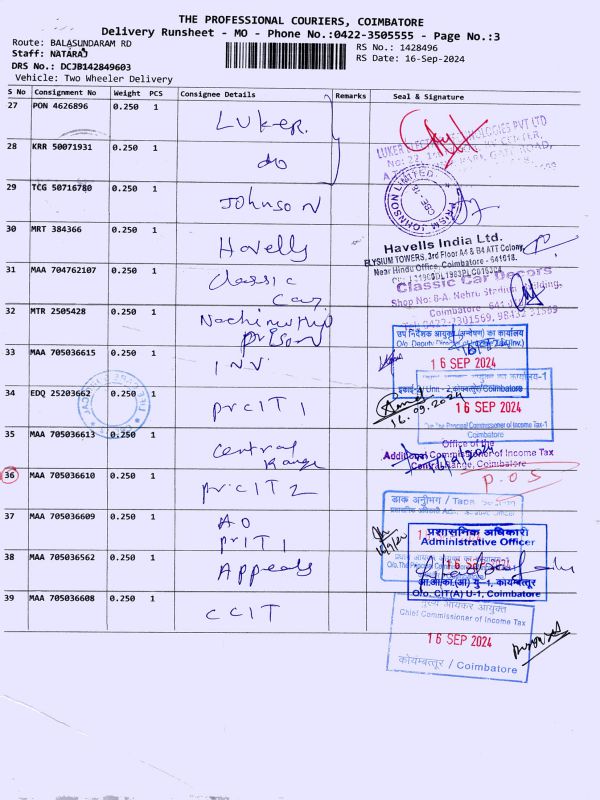 THE PROFESSIONAL COURIERS, COIMBATORE
Delivery Runsheet - MO - Phone No.:0422-3505555 - Page No.:3
Route: BALASUNDARAM RD
Staff: NATARAJ
DRS No.: DCJB142849603
Vehicle: Two Wheeler Delivery
RS No.: 1428496
RS Date: 16-Sep-2024
S No Consignment No Weight PCS Consignee Details Remarks Seal & Signature
27 PON 4626896 0.250 1 Luker
28 KRR 50071931 0.250 1 do
29 TCG 50716780 0.250 1 Johnson
30 MRT 384366 0.250 1 Havells
Havells India Ltd.
ELYSIUM TOWERS, 3rd Floor A4 & B4 ATT Colony,
Near Hindu Office, Coimbatore - 641018.
31 MAA 704762107 0.250 1 Classic
Car
Classic Car Decors
Shop No: 8-A, Nehru Stadium Building,
Coimbatore
32 MTR 2505428 0.250 1
उप निदेशक आयुक्त का कार्यालय
16 SEP 2024
33 MAA 705036615 0.250 1 INV
34 EDQ 25203662 0.250 1 PrCIT 1
16.09.2024
16 SEP 2024
O/o The Principal Commissioner of Income Tax-1
Coimbatore
35 MAA 705036613 0.250 1 Central
Range
Office of the
Additional Commissioner of Income Tax
Central Range, Coimbatore
36 MAA 705036610 0.250 1 PrCIT 2
P.O.S
37 MAA 705036609 0.250 1 AO
PrIT 1
डाक अनुभाग / Tapal Section
38 MAA 705036562 0.250 1 Appeals
प्रशासनिक अधिकारी
Administrative Officer
16 SEP 2024
आ.आ.का.(अ) यु-1, कोयम्बत्तूर
O/o. CIT(A) U-1, Coimbatore
39 MAA 705036608 0.250 1 CCIT
मुख्य आयकर आयुक्त
Chief Commissioner of Income Tax
16 SEP 2024
कोयंबत्तूर / Coimbatore